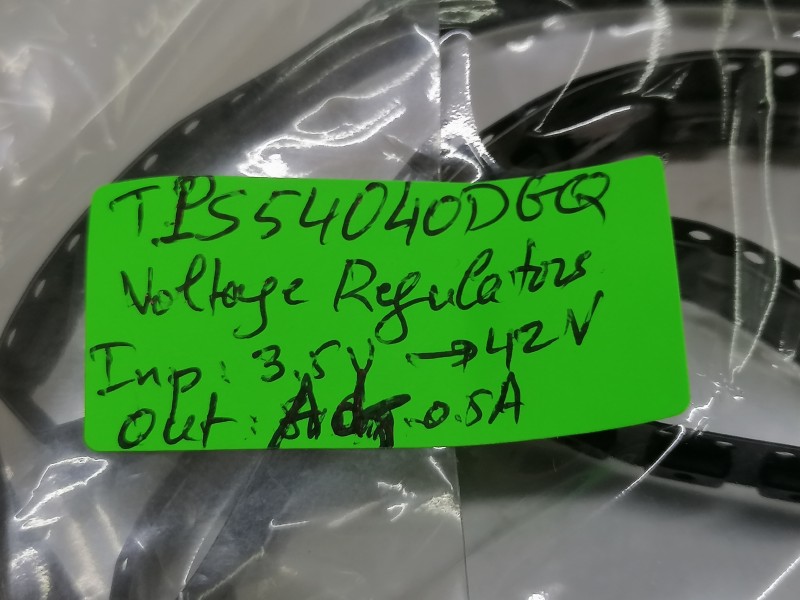 TPS54040DGQ
Voltage Regulators
Inp: 3.5V → 42V
Out: Adj 0.5A